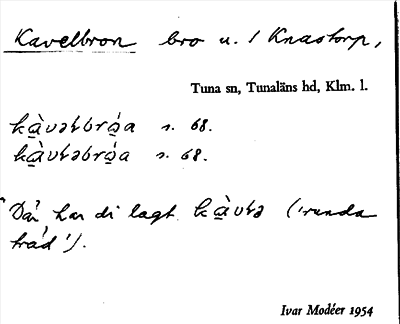 Kavelbron bro u. / Knastorp,
Tuna sn, Tunaläns hd, Klm. l.
s. 68.
s. 68.
"Där har di lagt ('runda
träd').
Ivar Modéer 1954